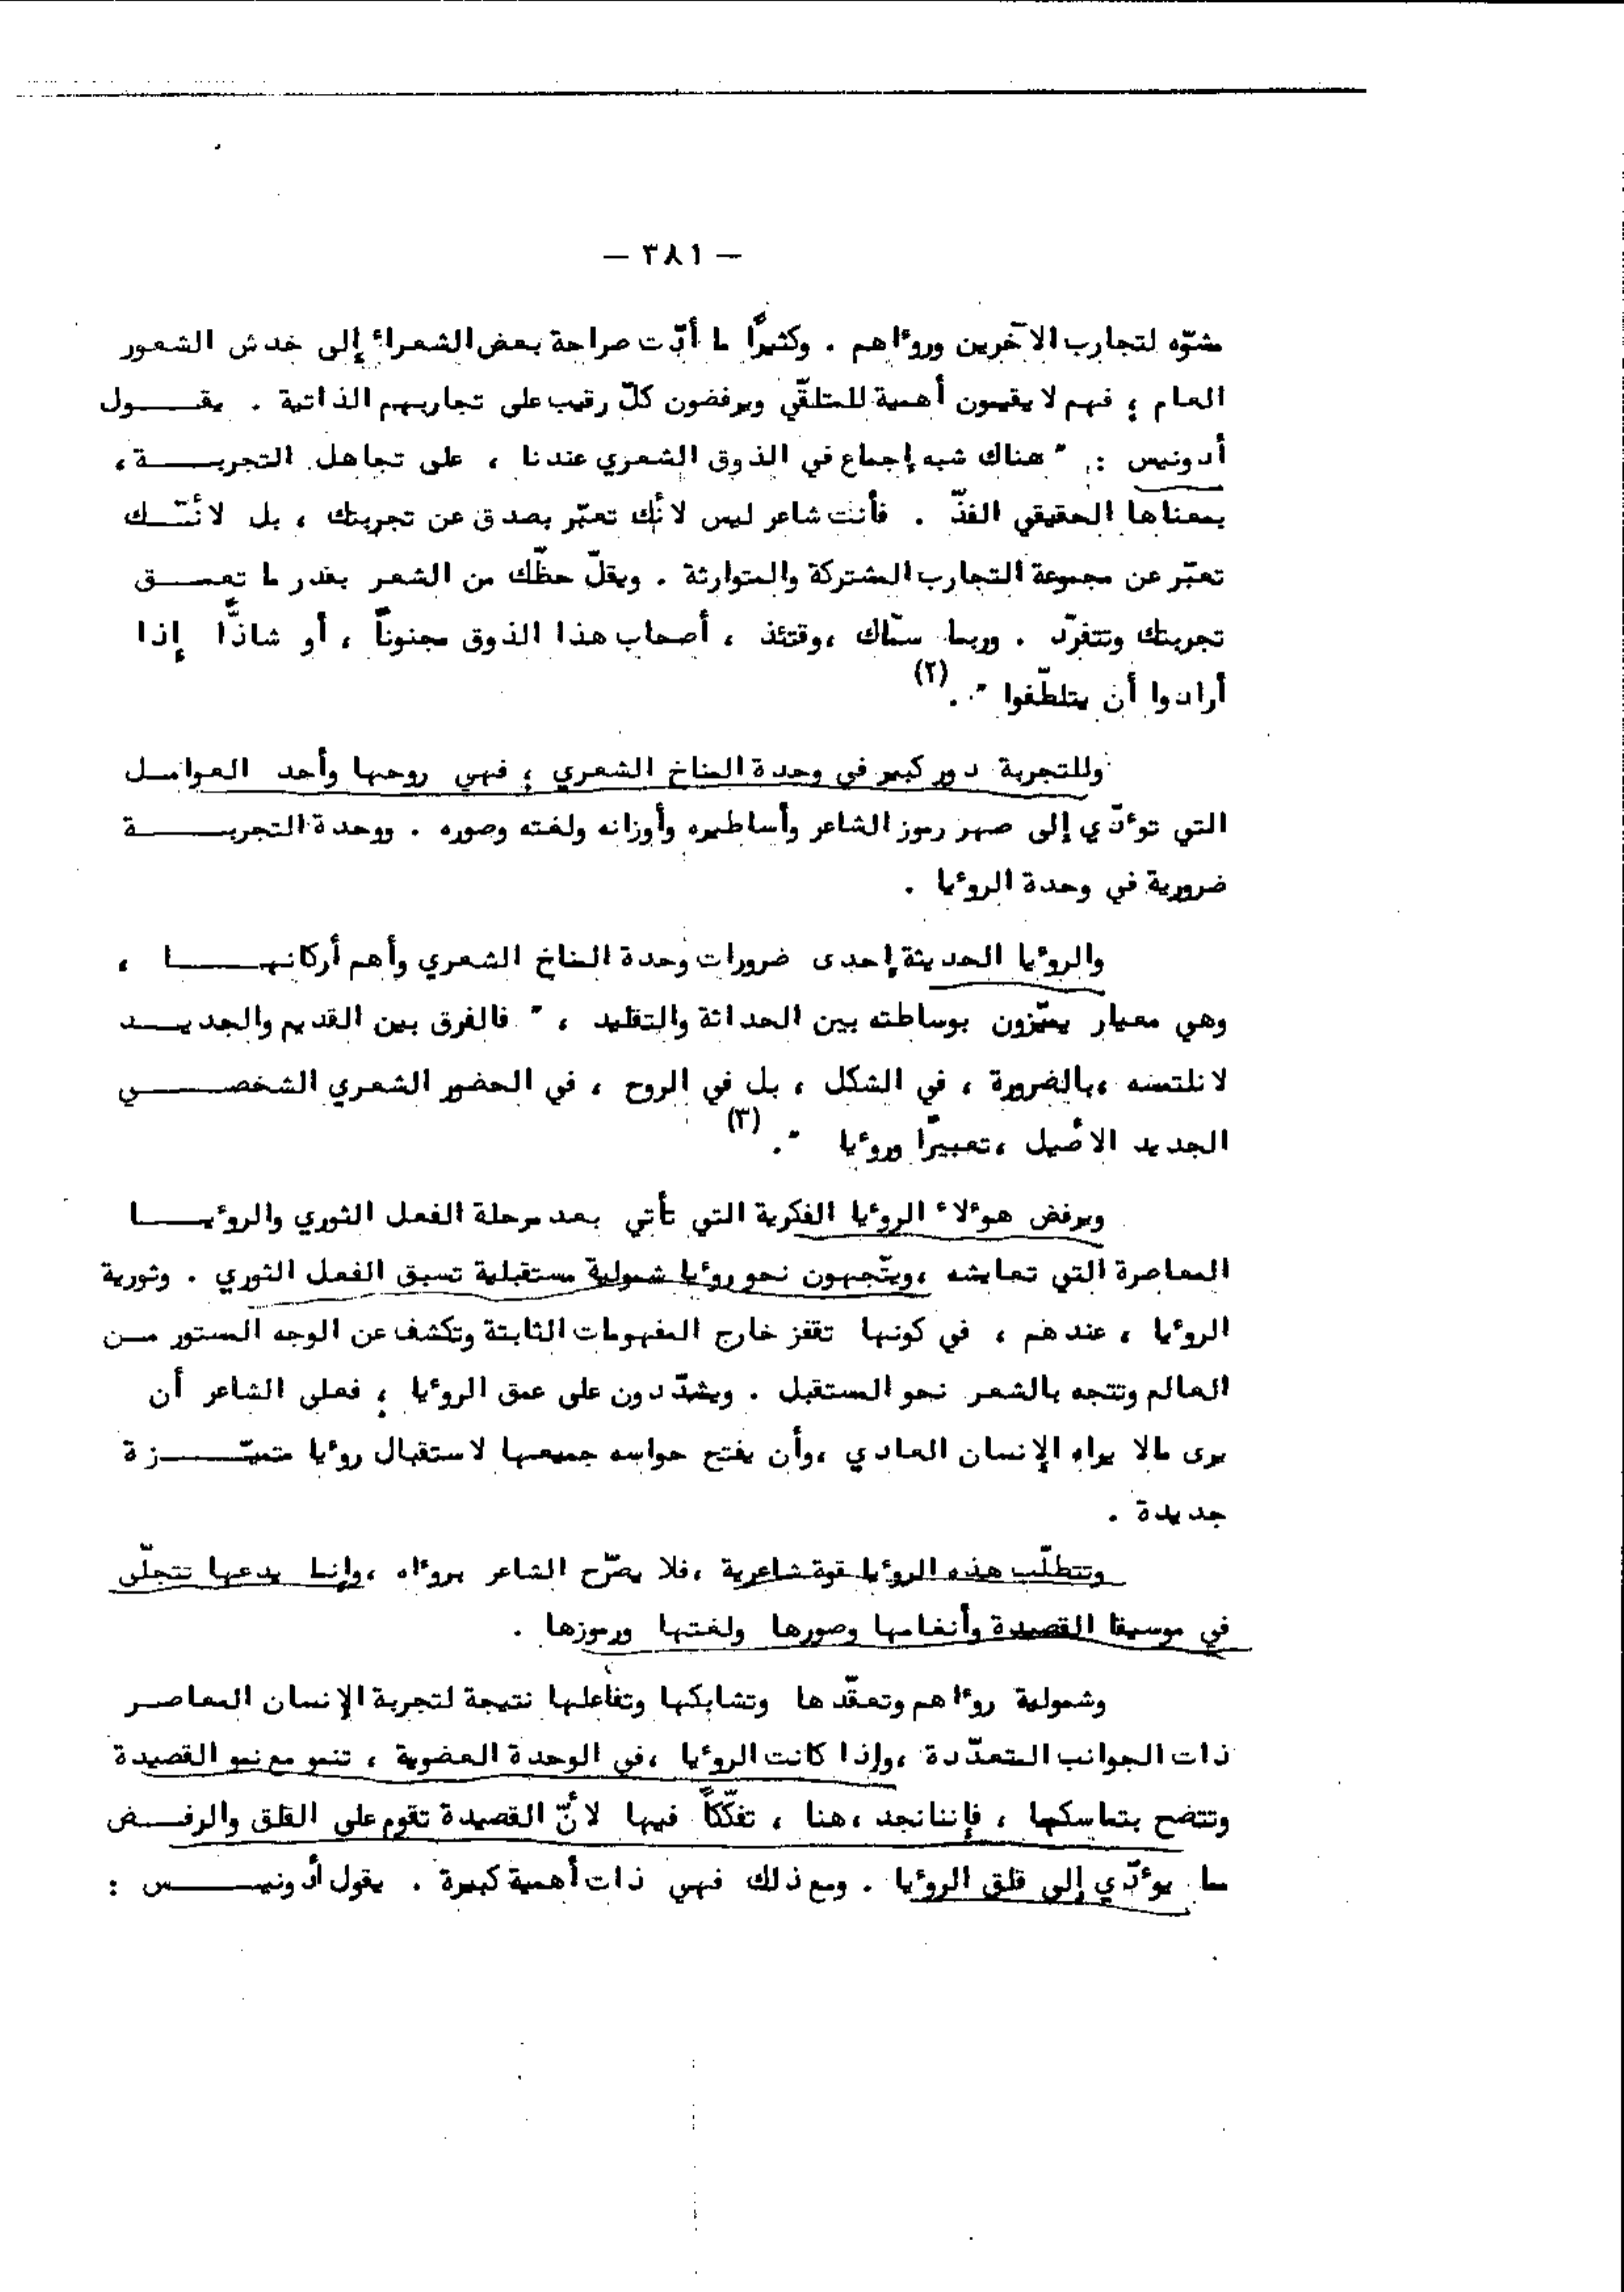 — ٣٨١ —
مشوّه لتجارب الآخرين ورؤاهم . وكثيرًا ما أدّت صراحة بعض الشعراء إلى خدش الشعور
العام ؛ فهم لا يقيمون أهمية للمتلقّي ويرفضون كلّ رقيب على تجاربهم الذاتية . يقــــول
أدونيس : " هناك شبه إجماع في الذوق الشعري عندنا ، على تجاهل التجربــــة ،
بمعناها الحقيقي الفذّ . فأنت شاعر ليس لأنّك تعبّر بصدق عن تجربتك ، بل لأنّــك
تعبّر عن مجموعة التجارب المشتركة والمتوارثة . ويقلّ حظّك من الشعر بقدر ما تعمــق
تجربتك وتتفرّد . وربما سمّاك ، وقتئذ ، أصحاب هذا الذوق مجنوناً ، أو شاذًّا إذا
أرادوا أن يتلطّفوا " . (٢)
وللتجربة دور كبير في وحدة المناخ الشعري ؛ فهي روحها وأحد العوامــل
التي تؤدّي إلى صهر رموز الشاعر وأساطيره وأوزانه ولغته وصوره . ووحدة التجربــــة
ضرورية في وحدة الرؤيا .
والرؤيا الحديثة إحدى ضرورات وحدة المناخ الشعري وأهم أركانهــــا ،
وهي معيار يميّزون بوساطته بين الحداثة والتقليد ، " فالفرق بين القديم والجديــد
لا نلتمسه ، بالضرورة ، في الشكل ، بل في الروح ، في الحضور الشعري الشخصــــي
الجديد الأصيل ، تعبيرًا ورؤيا " . (٣)
ويرفض هؤلاء الرؤيا الفكرية التي تأتي بعد مرحلة الفعل الثوري والرؤيــــا
المعاصرة التي تعايشه ، ويتّجهون نحو رؤيا شمولية مستقبلية تسبق الفعل الثوري . وثورية
الرؤيا ، عندهم ، في كونها تقفز خارج المفهومات الثابتة وتكشف عن الوجه المستور مــن
العالم وتتجه بالشعر نحو المستقبل . ويشدّدون على عمق الرؤيا ؛ فعلى الشاعر أن
يرى مالا يراه الإنسان العادي ، وأن يفتح حواسه جميعها لاستقبال رؤيا متميّــــزة
جديدة .
وتتطلّب هذه الرؤيا قوة شاعرية ، فلا يصرّح الشاعر برؤاه ، وإنما يدعها تتجلّى
في موسيقا القصيدة وأنغامها وصورها ولغتها ورموزها .
وشمولية رؤاهم وتعقّدها وتشابكها وتفاعلها نتيجة لتجربة الإنسان المعاصــر
ذات الجوانب المتعدّدة ، وإذا كانت الرؤيا ، في الوحدة العضوية ، تنمو مع نمو القصيدة
وتتضح بتماسكها ، فإننا نجد ، هنا ، تفكّكاً فيها لأنّ القصيدة تقوم على القلق والرفــض
مما يؤدّي إلى قلق الرؤيا . ومع ذلك فهي ذات أهمية كبيرة . يقول أدونيــــس :